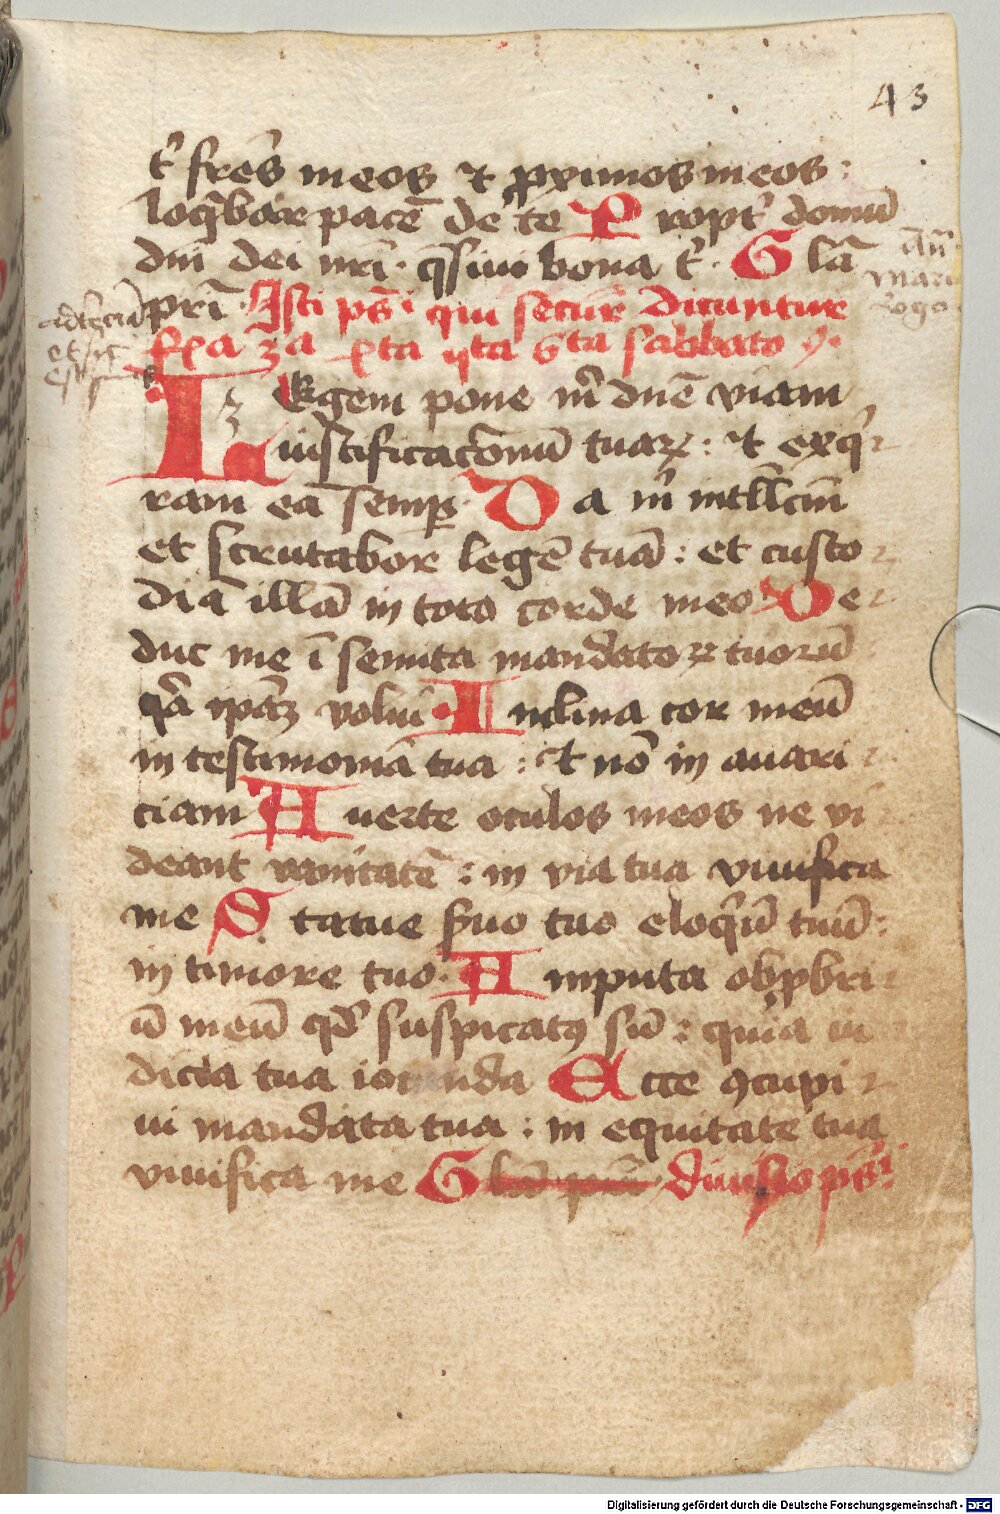 43
t᷑ fr̄es meos ⁊ ꝓximos meos :
loq̄bar pacē de te P ropt᷑ domū
dn̄i dei nr̄i · q̄siui bona t᷑ · G lā
pr̄i · Isti ps̄ · qui secūr dicuntur
fr̄ia 3a 4ta qͥta 6ta sabbato
L Egem pone m̄ dn̄e viam
iustificac̄onū tuaꝝ : ⁊ exq̄
ram eā semꝑ D a m̄ intllc̄m
et scrutabor legē tuā : et custo
diā illā in toto corde meo D e
duc me ī semita mandatoꝝ tuorū
q̄a ip̄aꝫ volui I nclina cor meū
in testimoniā tua : ⁊ nō in auari
ciam A uerte oculos meos ne vi
deant vanitatē : in via tua viuifica
me S tatue ẜuo tuo eloq̄ū tuū :
in timore tuo · A mputa obꝓbri
ū meū qd̄ suspicatꝰ sū : quia iu
dicia tua iocunda E cce ꝯcupi
ui mandata tua : in equitate tua
viuifica me G lā pr̄i diuisio ps̄
An̄
Mari
Digitalisierung gefördert durch die Deutsche Forschungsgemeinschaft - DFG